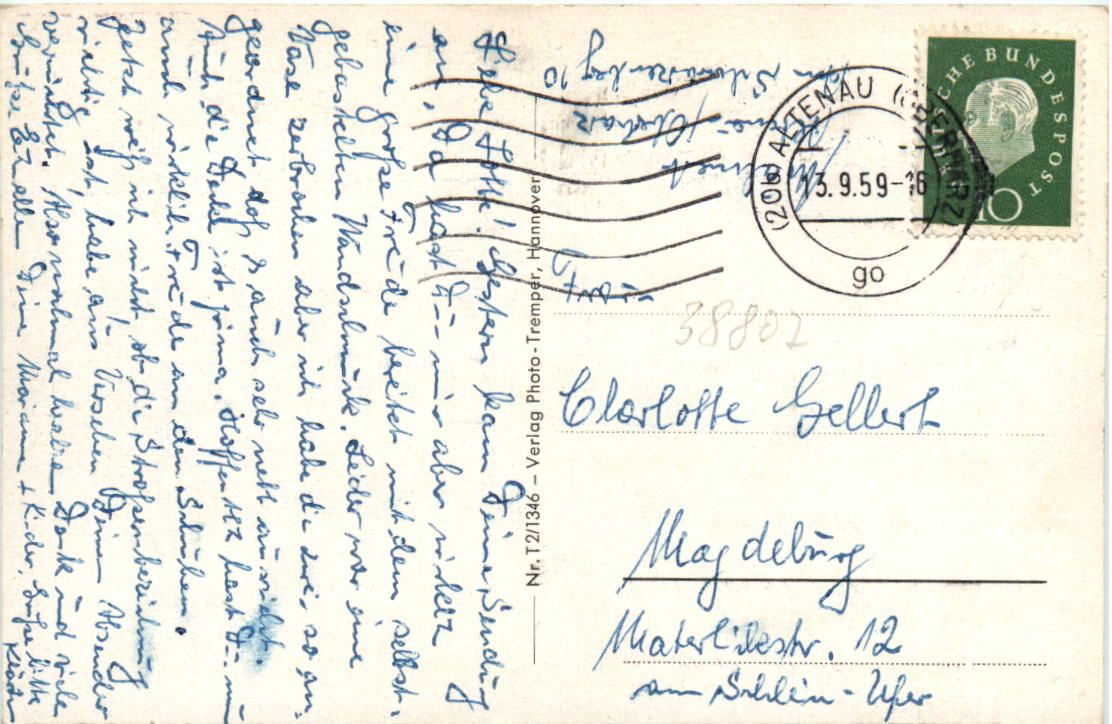 Liebe Lotte! Gestern kam Deine Sendung
an. Da hast Du mir aber
eine große Freude bereitet mit dem selbst-
gebastelten Wandschmuck. Leider war eine
Vase zerbrochen aber ich habe die zwei so an-
geordnet daß es auch sehr nett aussieht.
Auch die Decke ist prima. Hoffentl. hast Du nun
auch wirklich Freude an den Schuhen.
Jetzt weiß ich nicht ob die Straßenbezeichnung
richtig ist, habe aus Versehen Deinen Absender
vernichtet. Also nochmal Dank und viele
Grüße Euch alle Deine Marianne + Kinder. Grüße bitte
Nr. T2/1346 – Verlag Photo-Tremper, Hannover
DEUTSCHE BUNDESPOST
10
(20b) ALTENAU (OBERHARZ)
13.9.59-16
go
38802
Charlotte Gellert
Magdeburg
12
am Schlein-Ufer